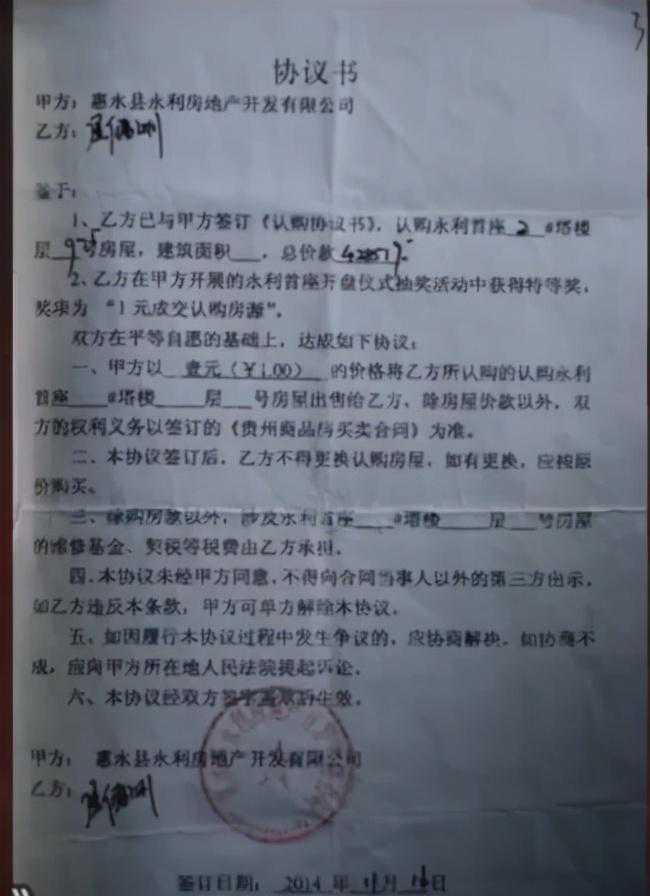 协议书
甲方：惠水县永利房地产开发有限公司
乙方：
鉴于：
1、乙方已与甲方签订《认购协议书》，认购永利首座 2 #塔楼
层 号房屋，建筑面积 ，总价款
2、乙方在甲方开展的永利首座开盘仪式抽奖活动中获得特等奖，
奖项为“1元成交认购房源”。
双方在平等自愿的基础上，达成如下协议：
一、甲方以 壹元（￥1.00） 的价格将乙方所认购的认购永利
首座 #塔楼 层 号房屋出售给乙方、除房屋价款以外，双
方的权利义务以签订的《贵州商品房买卖合同》为准。
二、本协议签订后，乙方不得更换认购房屋，如有更换，应按原
价购买。
三、除购房款以外，涉及永利首座 #塔楼 层 号房屋
的维修基金、契税等税费由乙方承担。
四、本协议未经甲方同意，不得向合同当事人以外的第三方出示，
如乙方违反本条款，甲方可单方解除本协议。
五、如因履行本协议过程中发生争议的，应协商解决。如协商不
成，应向甲方所在地人民法院提起诉讼。
六、本协议经双方签字盖章后生效。
甲方：惠水县永利房地产开发有限公司
乙方：
签订日期： 2014 年 月 日